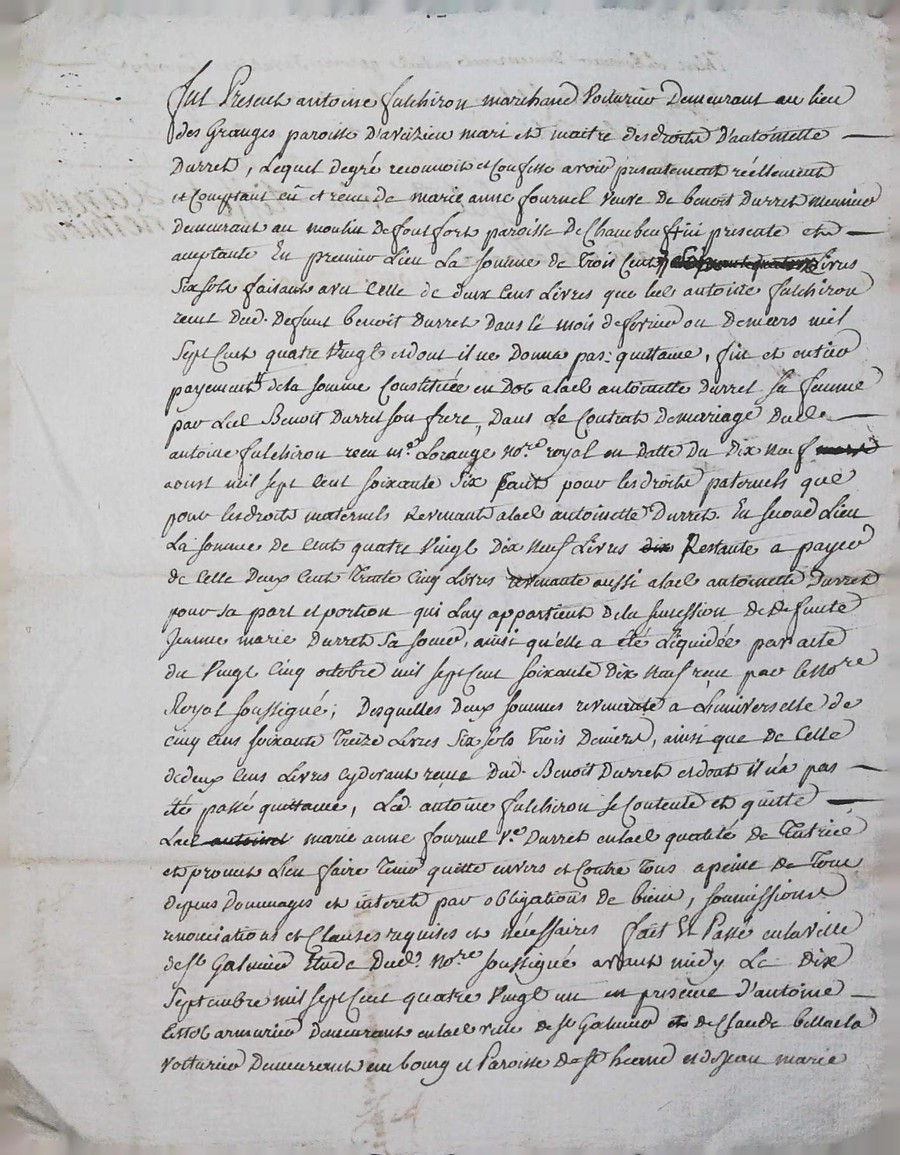 Fut Present antoine fulchiron marchand Voiturier Demeurant au lieu
des Granges paroisse D'aveizieu mari et maitre des droits D'antoinette
Durret, Lequel degré reconnoit et Confesse avoir presentement réellement
et Comptant eû et reçu de marie anne fournel veuve de benoit Durret meunier
demeurant au moulin de fontfort paroisse de Chambeuf ici presente et
acceptante En premier Lieu La somme de Trois Cent Livres
Six sols faisant avec Celle de deux Cens Livres que led antoine fulchiron
reçut Dud. Defunt benoit Durret Dans le mois de fevrier ou De mars mil
Sept Cent quatre Vingt et dont il ne Donna pas quittance, fin et entier
payement de la somme Constituée en Dot a lad antoinette Durret sa femme
par Led Benoit Durret son frere, Dans Le Contrat De mariage Dud.
antoine fulchiron reçu me. Lorange nore royal en Datte Du Dix neuf
aoust mil sept Cent soixante Six tant pour les droits paternels que
pour les droits maternels Revenant a lad antoinette Durret. En second Lieu
La somme de Cent quatre Vingt Dix neuf Livres Restante a payer
de Celle Deux Cent Trente Cinq Livres revenante aussi a lad antoinette Durret
pour sa part et portion qui Luy appartient de la succession de defunte
Jeanne marie Durret Sa soeur, ainsi qu'elle a été Liquidée par acte
du Vingt Cinq octobre mil sept Cent soixante Dix neuf reçu par le nore
Royal soussigné; Desquelles Deux sommes revenante a L'universelle de
cinq Cens soixante Treize Livres Six sols Trois Deniers, ainsi que De Celle
de deux Cens Livres cy devant reçue Dud. Benoit Durret et dont il n'a pas
été passé quittance, Led. antoine fulchiron se Contente et quitte
Lad marie anne fournel Ve. Durret en lad qualité de Tutrice
et promet L'en faire Tenir quitte envers et Contre Tous a peine de Tous
depens Dommages et interets par obligations de biens, soumissions
renonciations et Clauses requises et nécessaires fait Et Passé en la ville
de St. Galmier Etude Dud. nore soussigné avant midy Le Dix
Septembre mil sept Cent quatre Vingt un en presence d'antoine
armurier Demeurant en lad ville de St Galmier et de Claude
voiturier Demeurant au bourg et Paroisse de St heand et de Jean marie